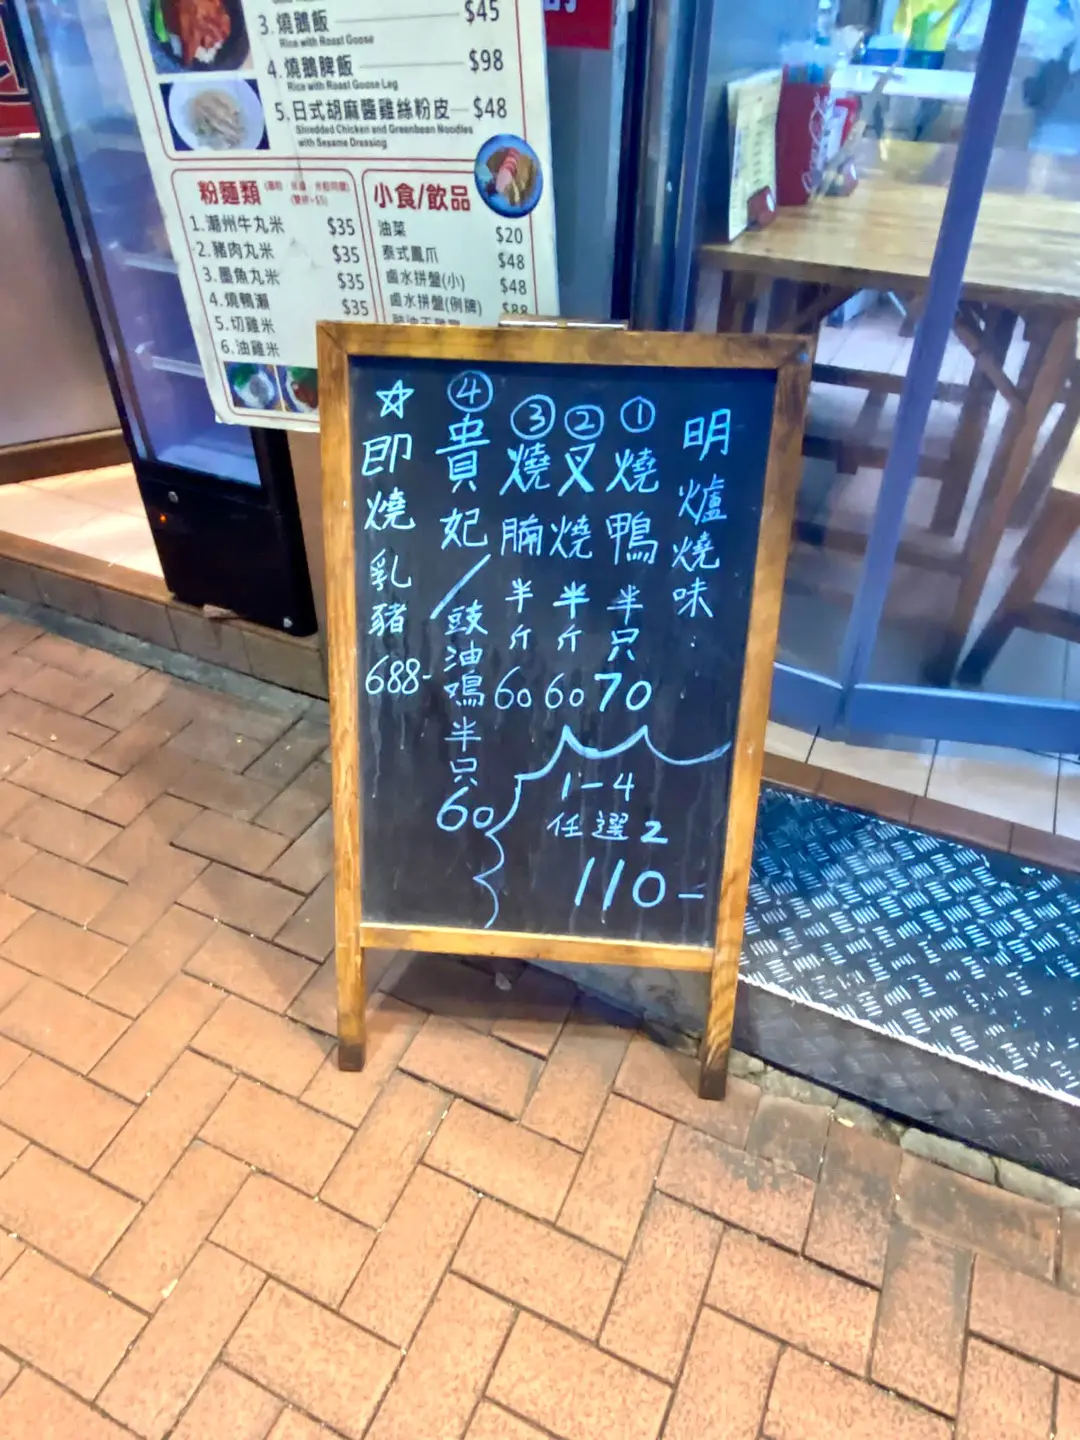 3.燒鵝飯 $45
Rice with Roast Goose
4.燒鵝髀飯 $98
Rice with Roast Goose Leg
5.日式胡麻醬雞絲粉皮 $48
Shredded Chicken and Greenbean Noodles
with Sesame Dressing
粉麵類
1.潮州牛丸米 $35
2.豬肉丸米 $35
3.墨魚丸米 $35
4.燒鴨瀨 $35
5.切雞米
6.油雞米
小食/飲品
油菜 $20
泰式鳳爪 $48
鹵水拼盤(小) $48
鹵水拼盤(例牌) $88
明爐燒味:
①燒鴨半只70
②叉燒半斤60
③燒腩半斤60
④貴妃/豉油鳴半只60
☆即燒乳豬688-
1-4
任選2
110-